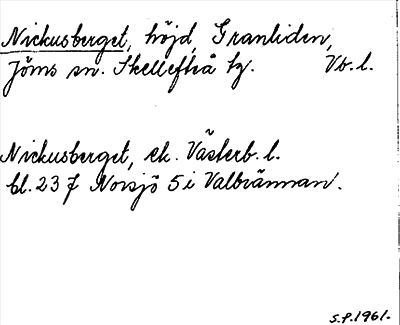 Nickusberget, höjd, Granliden,
Jöms sn. Skellefteå tg. Vb. l.
Nickusberget, ek. Västerb. l.
bl. 23 J Norsjö 5 i Valbrännan.
S.P. 1961.